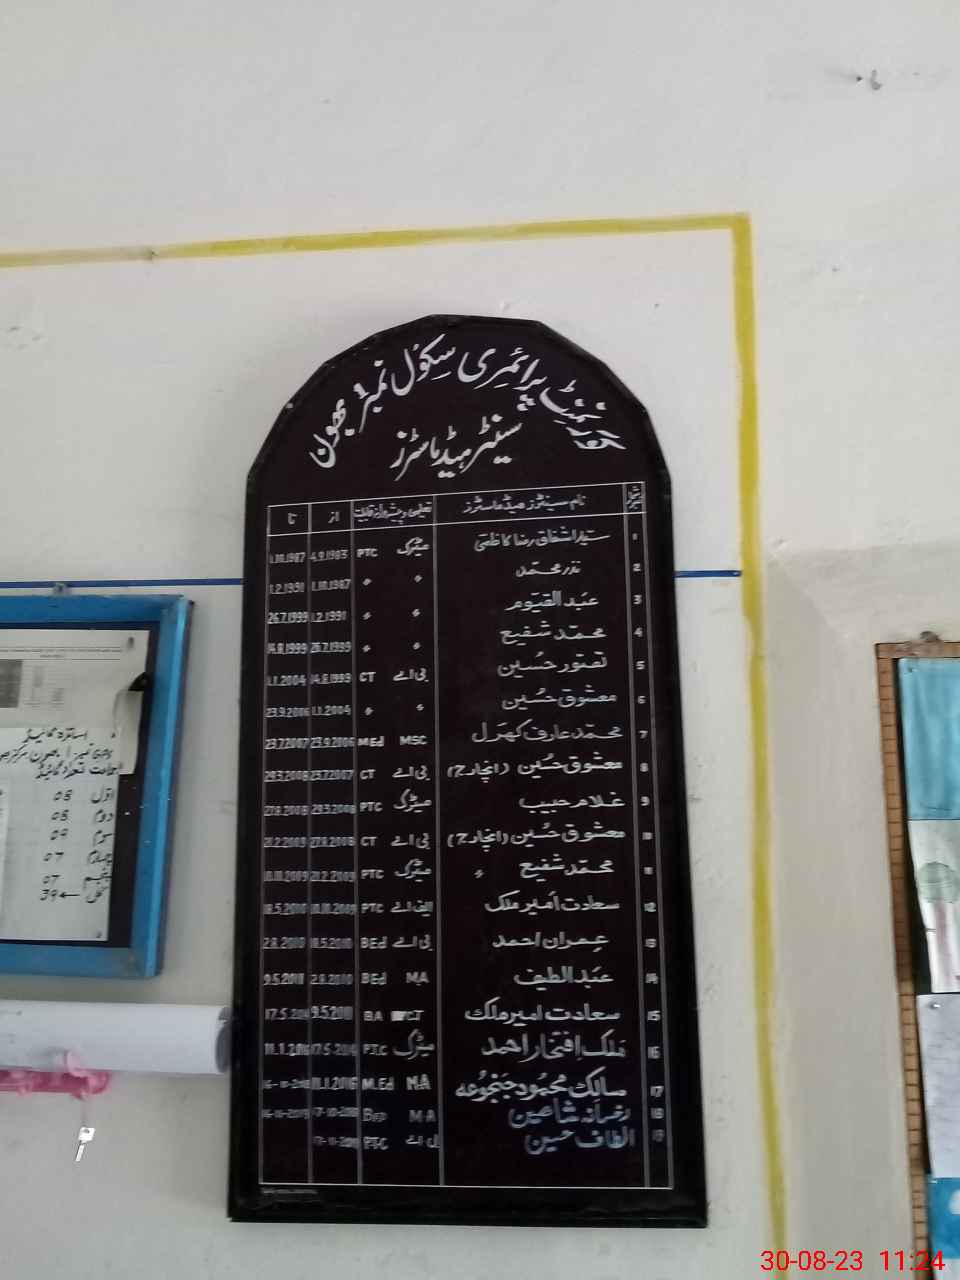 گورنمنٹ پرائمری سکول نمبر 1 بھون
سینٹر ہیڈ ماسٹرز
نمبر شمار نام سینٹرز ہیڈ ماسٹرز تعلیمی و پیشہ وارانہ قابلیت از تا
1 سید اشفاق رضا کاظمی میٹرک PTC 4.9.1983 1.10.1987
2 نذر محمد " " 1.10.1987 1.2.1991
3 عبدالقیوم " " 1.2.1991 26.7.1999
4 محمد شفیع " " 26.7.1999 14.8.1999
5 تصور حسین بی اے CT 14.8.1999 1.1.2004
6 معشوق حسین " " 1.1.2004 23.9.2006
7 محمد عارف کھرل MSC MEd 23.9.2006 23.7.2007
8 معشوق حسین (انچارج) بی اے CT 23.7.2007 29.3.2008
9 غلام حبیب میٹرک PTC 29.3.2008 27.8.2008
10 معشوق حسین (انچارج) بی اے CT 27.8.2008 21.2.2009
11 محمد شفیع " میٹرک PTC 21.2.2009 10.10.2009
12 سعادت امیر ملک ایف اے PTC 10.10.2009 18.5.2010
13 عمران احمد بی اے BEd 18.5.2010 2.8.2010
14 عبدالطیف MA BEd 2.8.2010 9.5.2011
15 سعادت امیر ملک CT BA 9.5.2011 17.5.2014
16 ملک افتخار احمد میٹرک PTC 17.5.2014 11.1.2016
17 سالک محمود جنجوعہ MA M.Ed 11.1.2016
18 رخسانہ شاہین MA BED
19 الطاف حسین بی اے PTC
اساتذہ گائیڈ
تعداد گائیڈ
اول 05
دوم 08
سوم 09
چہارم 07
پنجم 07
کل ← 39
30-08-23 11:24